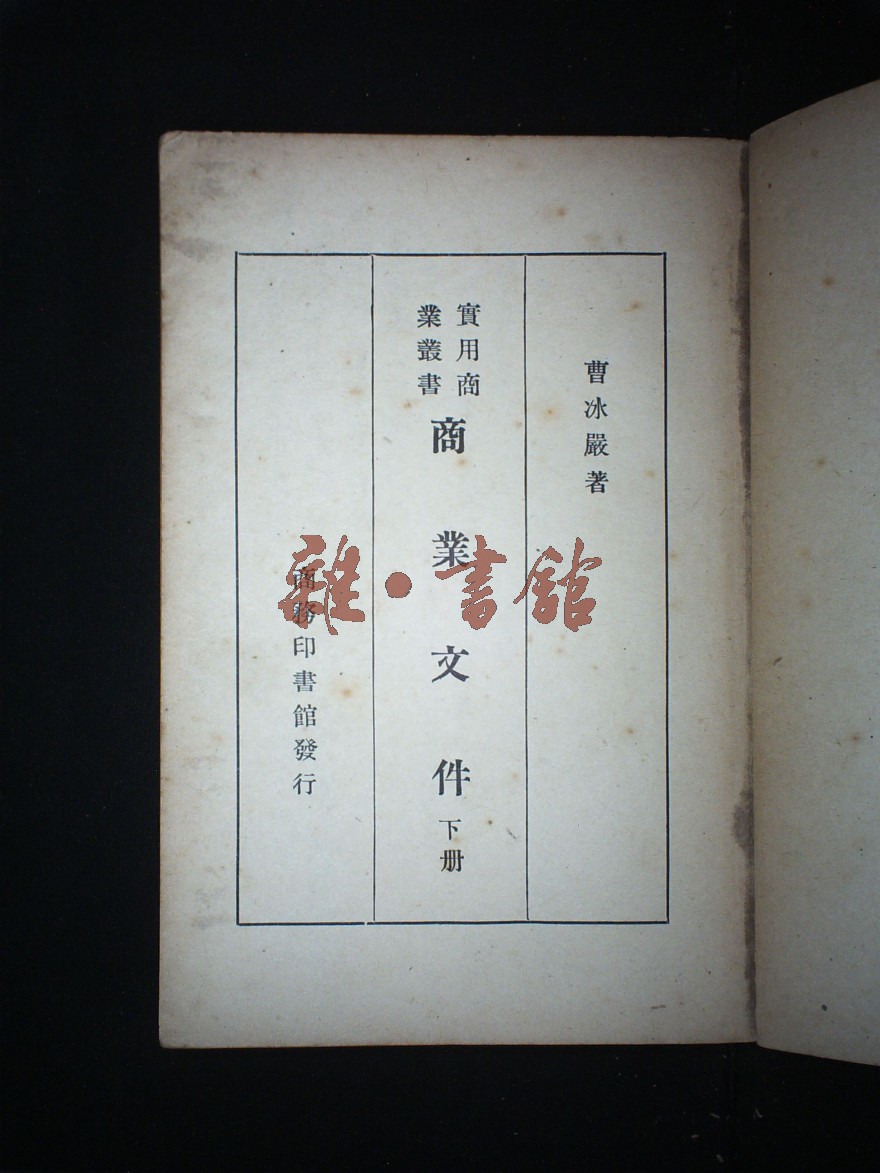 曹冰嚴著
實用商
業叢書
商業文件
下册
商務印書館發行
雜·書館